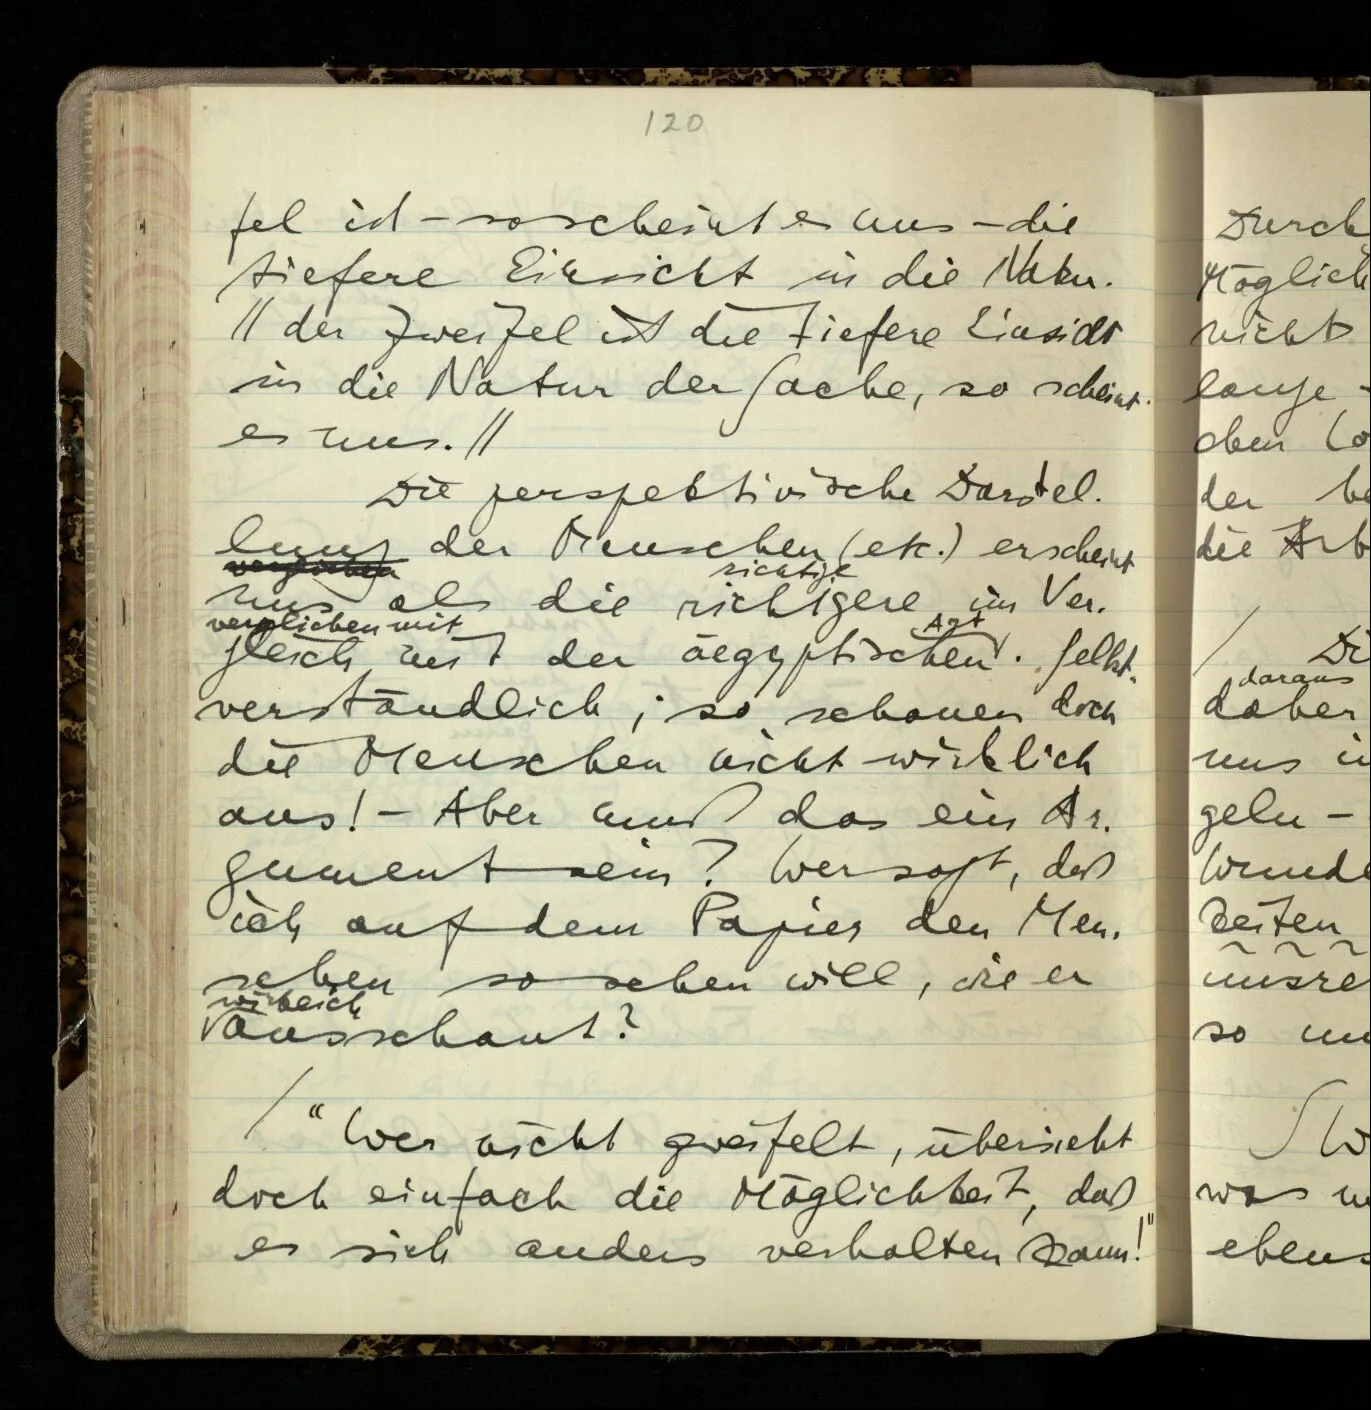 120
fel ist – so scheint es uns – die
tiefere Einsicht in die Natur.
// der Zweifel ist die tiefere Einsicht
in die Natur der Sache, so scheint
es uns. //
Die perspektivische Darstel-
lung der Menschen (etc.) erscheint
verglichen richtige
uns als die richtigere im Ver-
verglichen mit Art
gleich mit der äegyptischen. Selbst-
verständlich; so schauen doch
die Menschen nicht wirklich
aus! – Aber muß das ein Ar-
gument sein? Wer sagt, daß
ich auf dem Papier den Men-
schen so sehen will, wie er
wirklich
ausschaut?
/ "Wer nicht zweifelt, übersieht
doch einfach die Möglichkeit, daß
es sich anders verhalten kann!"
Durch
Möglich
nicht
lange –
oben
der
die
/ Di
daraus
daher
uns
geln –
Wunde
Seiten
unsre
so
was
ebens